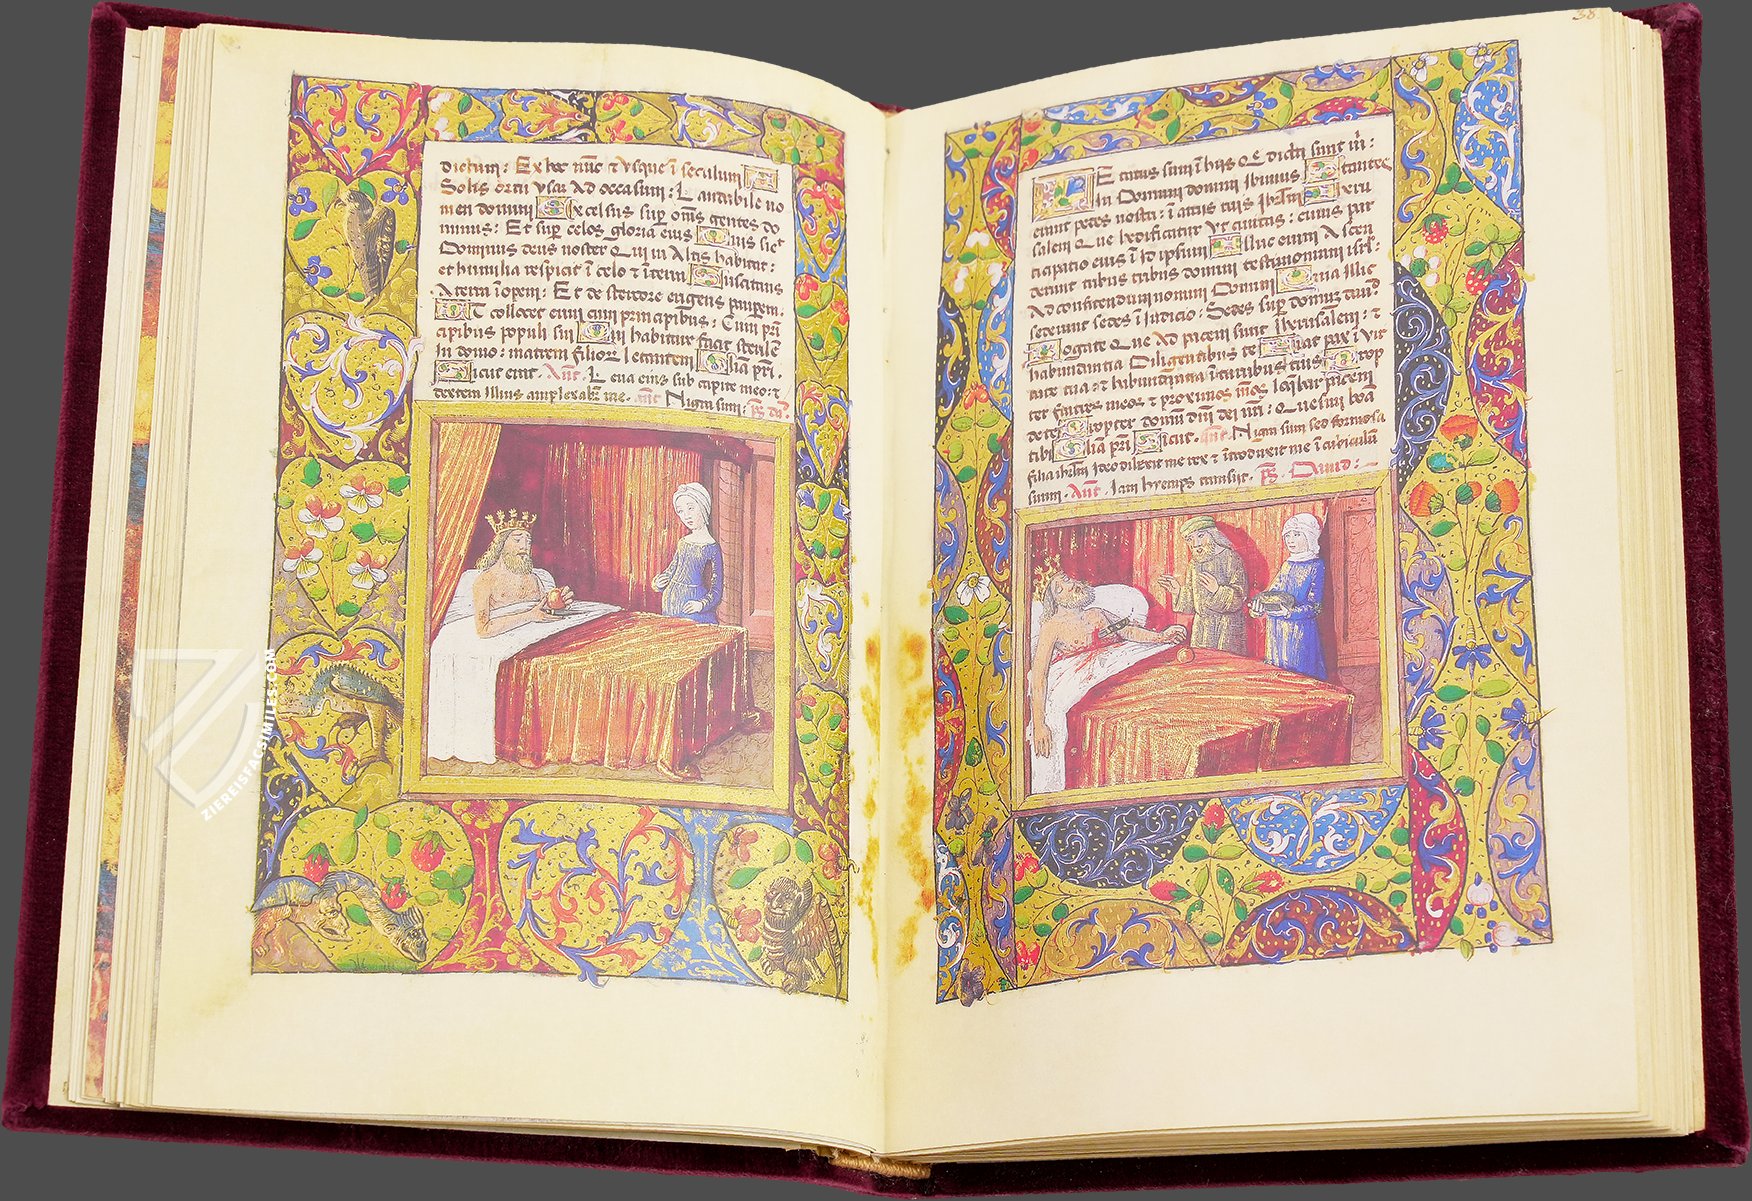 dictum: Ex hoc nūc & usque ī seculum A
Solis ortu usqꝫ Ad occasum: Laudabile no
men domini Excelsus sup om̄s gentes do
minus: Et sup celos gloria eius Quis sic̄
Dominus deus noster Qui in Altis habitat:
et humilia respicit ī celo & ī terra Suscitans
A terra īopem: Et de stercore erigens pauperem.
Ut collocet eum cum principibus: Cum prī
cipibus populi sui Qui habitare facit sterilē
In domo: matrem filiorꝫ letantem Glia pr̄i.
Sicut erat. Añt. Leua eius sub capite meo: &
dextera illius amplexabr̄ me. añt Nigra sum: ps̄ dd̄
38
Letatus sum ī hijs Que dicta sunt m̄:
In Domum domini Ibimus Stantes
erant pedes nostri: ī atrijs tuis Ihrlm̄ Iheru
salem Que hedificatur Vt ciuitas: cuius par
ticipatio eius ī Id ipsum Illuc enim Ascen
derunt tribus tribus domini testimonium isrl̄:
Ad confitendum nomini Domini Quia Illic
sederunt sedes ī Iudicio: Sedes sup domū dauid
Rogate Que Ad pacem sunt Iherusalem: &
habundantia Diligentibus te Fiat pax ī vir
tute tua: & habundantia ī turribus tuis Prop
ter fratres meos & proximos meos loqbar pacem
de te Propter domū dn̄i dei nr̄i: Quesiui bōa
tibi Glia pr̄i Sicut. añt. Nigra sum sed formosa
filia ihrlm̄ Ideo dilexit me rex & ītroduxit me ī cubiculū
suum. Añt. Iam hyemps transijt. ps̄. Dauid:
ZIEREISFACSIMILES.COM